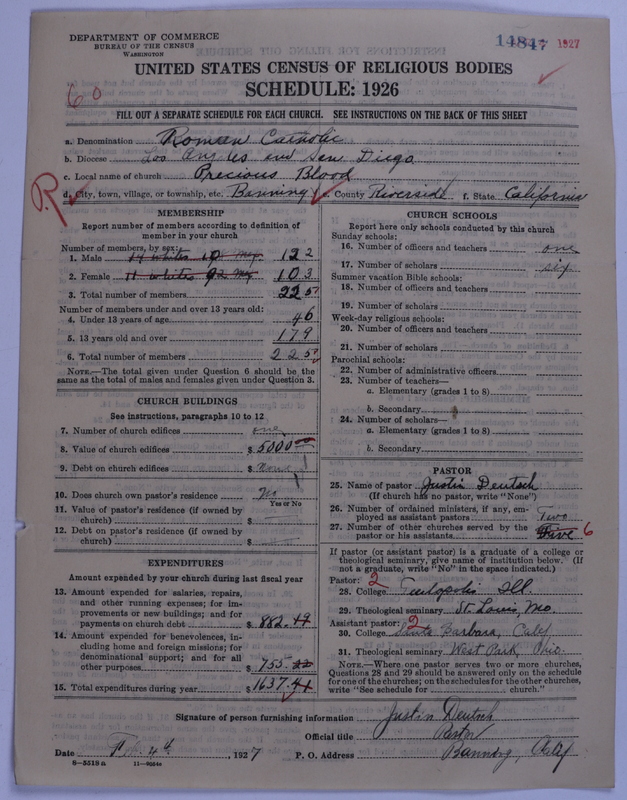 DEPARTMENT OF COMMERCE
BUREAU OF THE CENSUS
WASHINGTON
14847 1927
UNITED STATES CENSUS OF RELIGIOUS BODIES
SCHEDULE: 1926
60
FILL OUT A SEPARATE SCHEDULE FOR EACH CHURCH. SEE INSTRUCTIONS ON THE BACK OF THIS SHEET
a. Denomination Roman Catholic
b. Diocese Los Angeles and San Diego
c. Local name of church Precious Blood
R
d. City, town, village, or township, etc. Banning e. County Riverside f. State California
MEMBERSHIP
Report number of members according to definition of
member in your church
Number of members, by sex:
1. Male 14 whites 10 Mex 122
2. Female 11 whites 92 Mex 103
3. Total number of members 225
Number of members under and over 13 years old:
4. Under 13 years of age 46
5. 13 years old and over 179
6. Total number of members 225
NOTE.—The total given under Question 6 should be
same as the total of males and females given under Question 3.
CHURCH BUILDINGS
See instructions, paragraphs 10 to 12
7. Number of church edifices one
8. Value of church edifices $ 5000
9. Debt on church edifices $ None
10. Does church own pastor's residence No
Yes or No
11. Value of pastor's residence (if owned by
church) $
12. Debt on pastor's residence (if owned by
church) $
EXPENDITURES
Amount expended by your church during last fiscal year
13. Amount expended for salaries, repairs,
and other running expenses; for im-
provements or new buildings; and for
payments on church debt $ 882.19
14. Amount expended for benevolences, in-
cluding home and foreign missions; for
denominational support; and for all
other purposes $ 755.22
15. Total expenditures during year $ 1637.41
CHURCH SCHOOLS
Report here only schools conducted by this church
Sunday schools:
16. Number of officers and teachers one
17. Number of scholars six
Summer vacation Bible schools:
18. Number of officers and teachers
19. Number of scholars
Week-day religious schools:
20. Number of officers and teachers
21. Number of scholars
Parochial schools:
22. Number of administrative officers
23. Number of teachers—
a. Elementary (grades 1 to 8)
b. Secondary
24. Number of scholars—
a. Elementary (grades 1 to 8)
b. Secondary
PASTOR
25. Name of pastor Justin Deutsch
(If church has no pastor, write "None")
26. Number of ordained ministers, if any, em-
ployed as assistant pastors Two
27. Number of other churches served by the
pastor or his assistants Five 6
If pastor (or assistant pastor) is a graduate of a college or
theological seminary, give name of institution below. (If
not a graduate, write "No" in the space indicated.)
Pastor: 2
28. College Teutopolis Ill.
29. Theological seminary St. Louis, Mo.
Assistant pastor: 2
30. College Santa Barbara, Calif
31. Theological seminary West Park, Ohio.
NOTE.—Where one pastor serves two or more churches,
Questions 28 and 29 should be answered only on the schedule
for one of the churches; on the schedules for the other churches,
write "See schedule for church."
Signature of person furnishing information Justin Deutsch
Official title Pastor
Date Feb. 4th, 1927 P. O. Address Banning, Calif
8—5518a 11—9554a